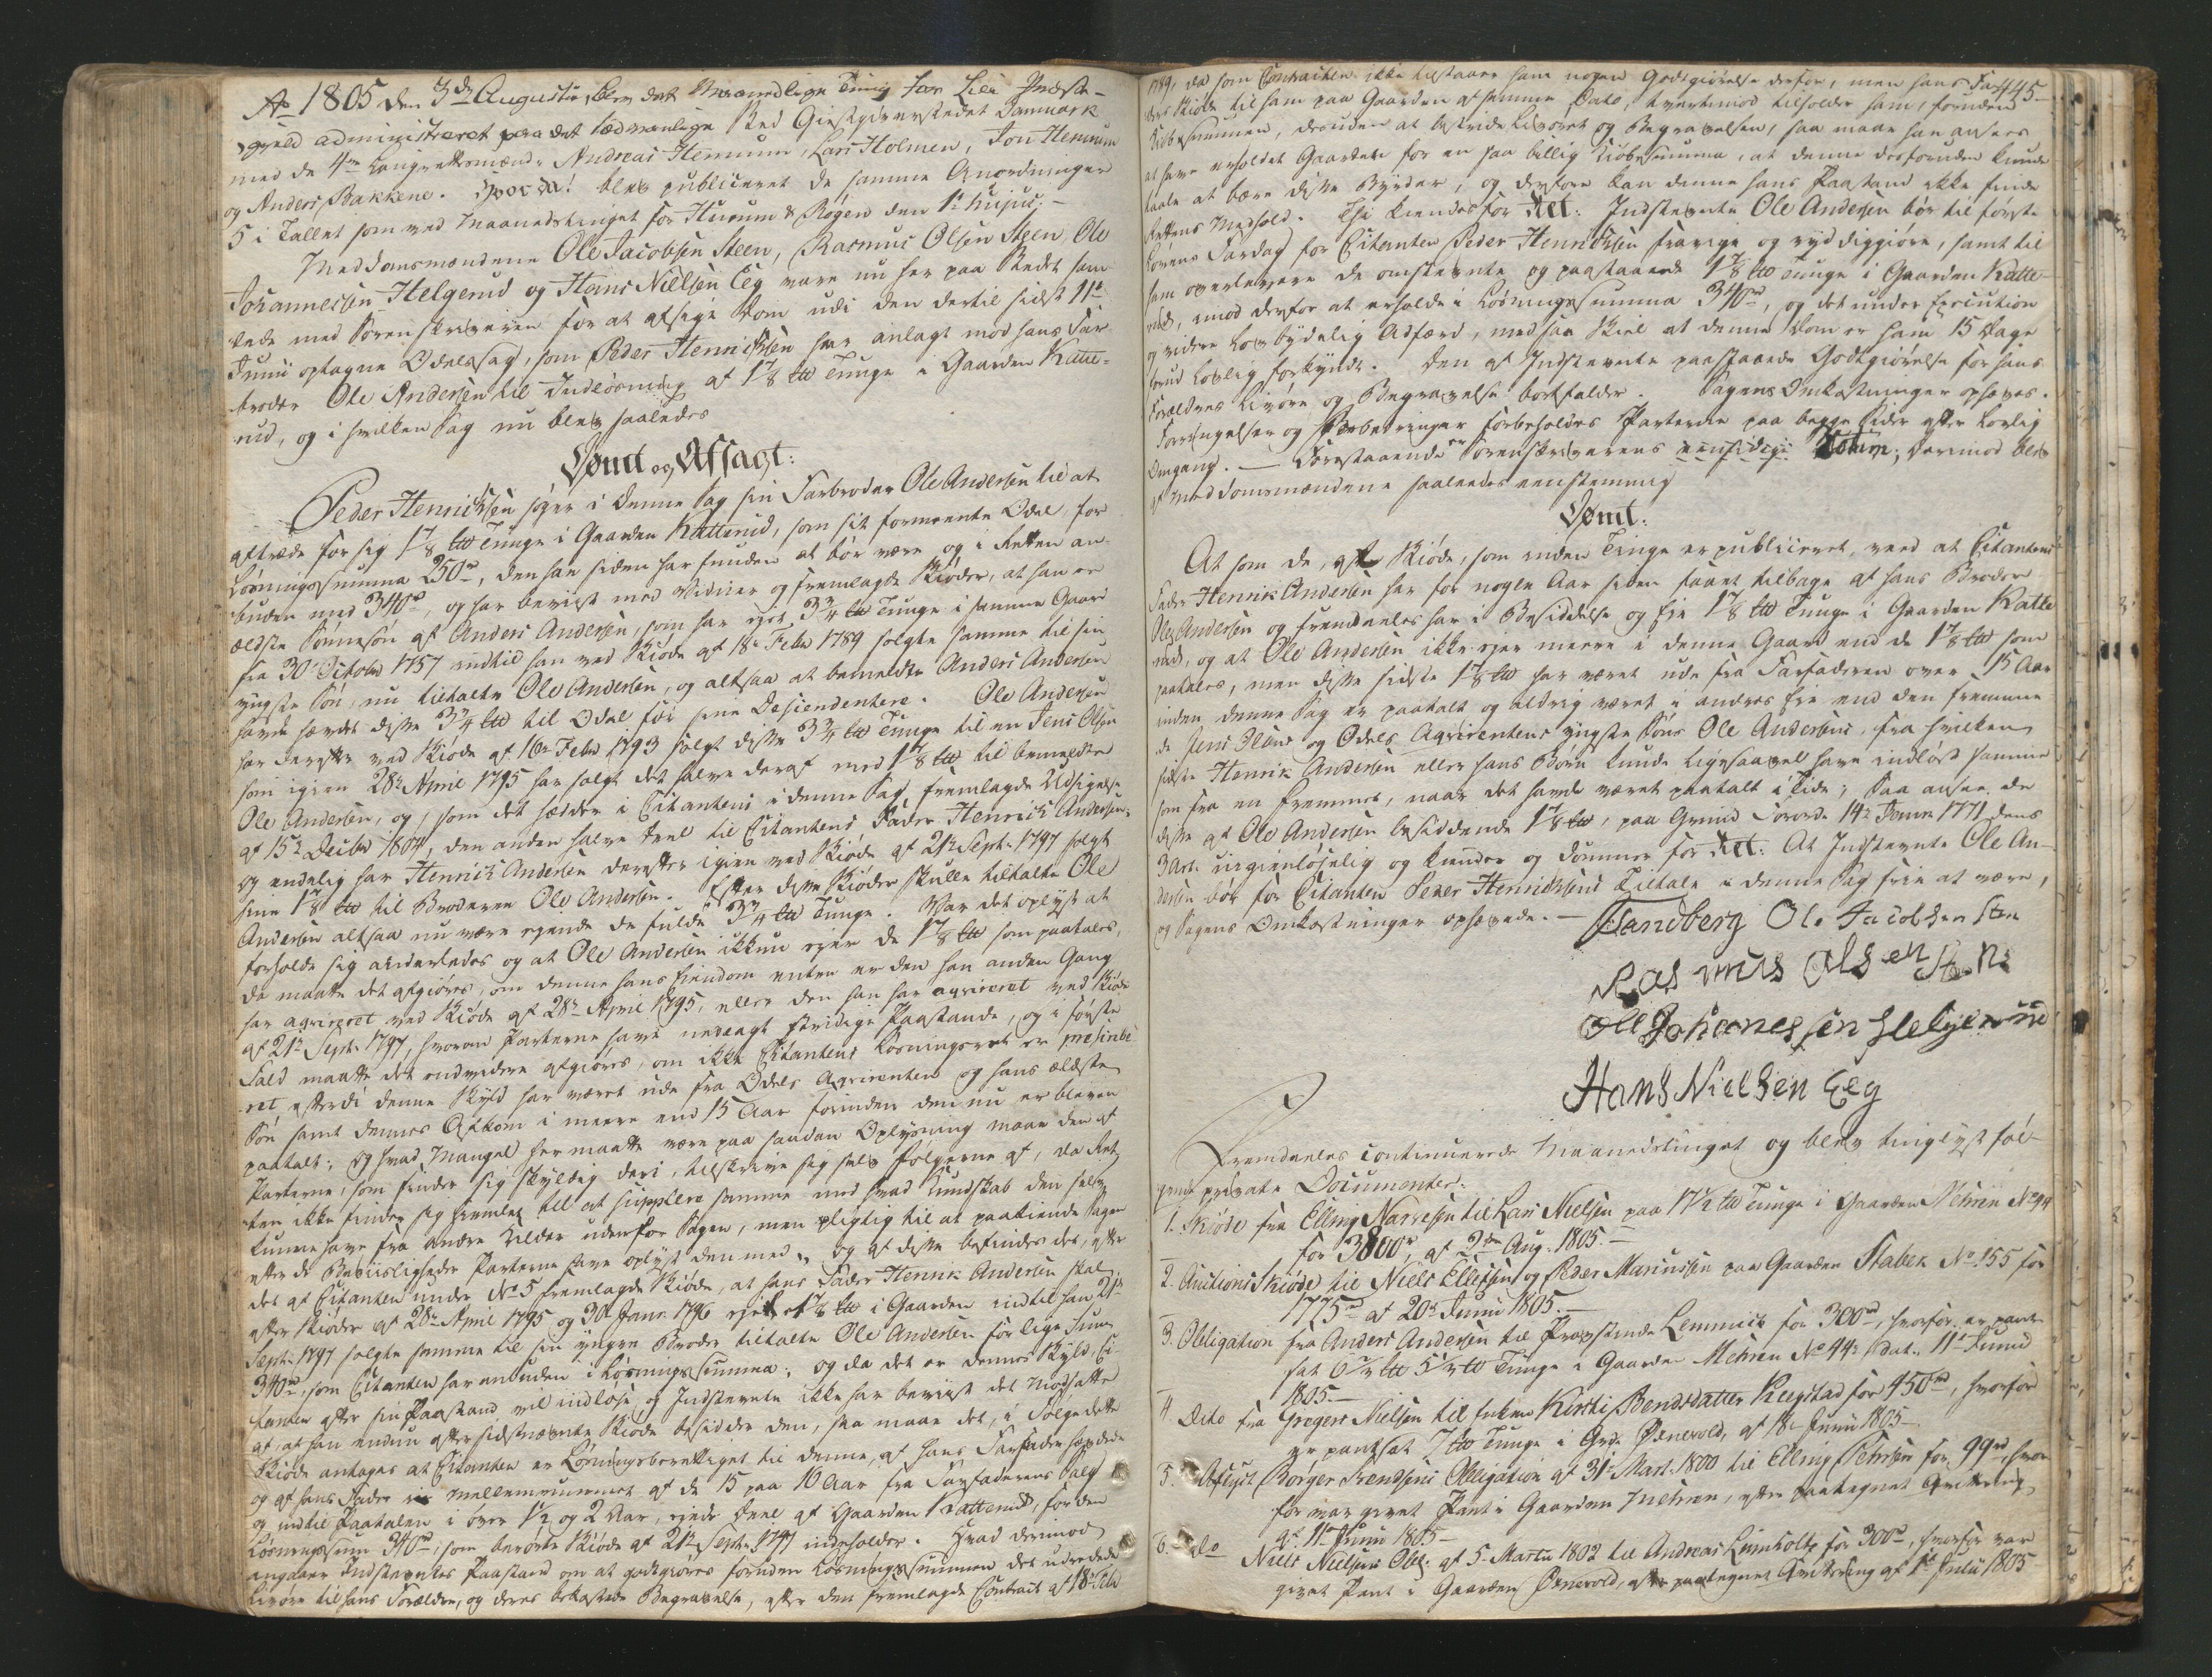 Ao 1805 den 3de Augusti, blev det Maanedlige Ting for Lier Præste-
gield administreret paa det sædvanlige Sted Giestgiverstedet Danmark
med de 4re Laugrettsmænd: Andreas Hennum, Lars Holmen, Jon Hennum
og Anders Bakkene. Hvorda! blev publiceret de samme Anordninger
5 i Tallet som ved Maanedstinget for Hurum & Røgen den 1te hujus: -
Meddomsmændene Ole Jacobsen Steen, Rasmus Olsen Steen, Ole
Johannessen Helgerud og Hans Nielsen Eeg vare nu her paa Stedet sam-
lede med Sorenskriveren for at afsige Dom udi den dertil sidst 11te
Junii optagne Odelssag, som Peder Henrichsen har anlagt mod hans Far-
broder Ole Andersen til Indløsning af 1 7/8 ℔ Tunge i Gaarden Katte-
rud, og i hvilken Sag nu blev saaledes
Dømt og Afsagt:
Peder Henrichsen søger i denne Sag sin Farbroder Ole Andersen til at
aftræde for sig 1 7/8 ℔ Tunge i Gaarden Katterud, som sit formeente Odel, for
Løsningssumma 250rd, den han siden har funden at bør være og i Retten an-
buden med 340rd, og har beviist med Vidner og fremlagde Skiøder, at han er
ældste Sønnesøn af Anders Andersen, som har ejet 3 3/4 ℔ Tunge i samme Gaard
fra 30te October 1757 indtil han ved Skiøde af 18de Febr 1789 solgte samme til sin
yngste Søn, nu tiltalte Ole Andersen, og altsaa at bemeldte Anders Andersen
havde hævdet disse 3 3/4 ℔ til Odel for sine Descendentere. Ole Andersen
har derefter ved Skiøde af 16de Febr 1793 solgt disse 3 3/4 ℔ Tunge til en Jens Olsen
som igien 28de April 1795 har solgt det halve deraf med 1 7/8 ℔ til bemeldte
Ole Andersen, og, som det hedder i Citantens i denne Sag fremlagde Udsigelse
af 15de Decbr 1804, den anden halve Deel til Citantens Fader Henrich Andersen,
og endelig har Henrich Andersen derefter igien ved Skiøde af 21de Septr 1797 solgt
sine 1 7/8 ℔ til Broderen Ole Andersen. Efter disse Skiøder skulle tiltalte Ole
Andersen altsaa nu være ejende de fulde 3 3/4 ℔ Tunge. Var det oplyst at
forholde sig anderledes og at Ole Andersen ikkun ejer de 1 7/8 ℔ som paatales,
da maatte det afgiøres, om denne hans Eiendom enten er den han anden Gang
har aqvireret ved Skiøde af 28de April 1795, eller den han har aqvireret ved Skiøde
af 21de Septr 1797, hvorom Parterne have nedlagt stridige Paastande, og i første
Fald maatte det endvidere afgiøres, om ikke Citantens Løsningsret er præscribe-
ret, efterdi denne Skyld har været ude fra Odels Aqvirenten og hans ældste
Søn samt dennes Afkom i meere end 15 Aar forinden den nu er bleven
paatalt; og hvad Mangel her maatte være paa saadan Oplysning maae den af
Parterne, som finder sig skyldig deri, tilskrive sig selv Følgerne af, da Ret-
ten ikke finder sig hiemlet til at supplere samme med hvad Kundskab den selv
kunne have fra andre Kilder udenfor Sagen, men pligtig til at paakiende Sagen
efter de Beviisligheder Parterne have oplyst den med, og af disse befindes det, efter
det af Citanten under No 5 fremlagde Skiøde, at hans Fader Henrik Andersen skal
efter Skiøder af 28de April 1795 og 30te Janr 1796 ejet 1 7/8 ℔ i Gaarden indtil han 21de
Septr 1797 solgte samme til sin yngre Broder tiltalte Ole Andersen for lige Sum
340rd, som Citanten har anbuden i Løsningssumma; og da det er dennes Skyld, Ci-
tanten efter sin Paastand vil indløse og Indstevnte ikke har beviist det Modsatte
af, at han endnu efter sidstnævnte Skiøde besidder den, saa maae det, i Følge dette
Skiøde antages at Citanten er Løsningsberettiget til denne, af hans Farfader hævdede
og af hans Fader i Mellemrummet af de 15 paa 16 Aar fra Farfaderens Salg
og indtil Paatalen i over 1 1/2 og 2 Aar, ejede Deel af Gaarden Katterud, for den
Løsningssum 340rd, som berørte Skiøde af 21de Septr 1797 indeholder. Hvad derimod
angaaer Indstevntes Paastand om at godtgiøres foruden Løsningssummen det udredede
Livøre til hans Forældre, og deres bekostede Begravelse, efter den fremlagde Contract af 18de Febr
445
1789, da som Contracten ikke tilstaaer ham nogen Godtgiørelse derfor, men hans Fa-
ders Skiøde til ham paa Gaarden af samme Dato, tvertimod tilholder ham, foruden
Kiøbesummen, desuden at bestride Livøret og Begravelsen, saa maae han ansees
at have erholdet Gaarden for en saa billig Kiøbesumma, at denne desforuden kunde
taale at bære disse Byrder, og derfore kan denne hans Paastand ikke finde
Rettens Medhold. Thi kiendes for Ret: Indstevnte Ole Andersen bør til første
Lovens Fardag for Citanten Peder Henrichsen fravige og ryddiggiøre, samt til
ham overlevere de omstevnte og paastaaede 1 7/8 ℔ Tunge i Gaarden Katte-
rud, imod derfor at erholde i Løsningssumma 340rd, og det under Execution
og videre Lovbydelig Adfærd, med saa Skiel at denne Dom er ham 15 Dage
forud lovlig forkyndt. Den af Indstevnte paastaaede Godtgiørelse for hans
Forældres Livøre og Begravelse bortfalder. Sagens Omkostninger ophæves.
Forringelser og Forbedringer forbeholdes Parterne paa begge Sider efter Lovlig
Omgang. — Forestaaende er Sorenskriverens eensidige Votum; derimod blev
af Meddomsmændene saaledes eenstemmig
Dømt:
At som de, af et Skiøde, som inden Tinge er publiceret, veed at Citantens
Fader Henrik Andersen har for nogle Aar siden faaet tilbage af hans Broder
Ole Andersen og fremdeeles har i Besiddelse og Eie 1 7/8 ℔ Tunge i Gaarden Katte-
rud, og at Ole Andersen ikke ejer meere i denne Gaard end de 1 7/8 ℔ som
paatales, men disse sidste 1 7/8 ℔ har været ude fra Farfaderen over 15 Aar
inden denne Sag er paatalt og aldrig været i andres Eie end den fremme-
de Jens Olsens og Odels Aqvirentens yngste Søns Ole Andersens, fra hvilken
sidste Henrik Andersen eller hans Børn kunde ligesaavel have indløst samme
som fra en fremmet, naar det havde været paatalt i Tide; saa ansee de
disse af Ole Andersen besiddende 1 7/8 ℔, paa Grund Forordn 14de Janrr 1771 dens
3 Art. uigienløselig og kiender og dømmer for Ret: At Indstevnte Ole An-
dersen bør for Citanten Peder Henrichsens Tiltale i denne Sag frie at være,
og Sagens Omkostninger ophævede. —
Sandberg Ole Jacobsen Sten
Rasmus Olsen Sten
Ole Johannessen Helgerud
Hans Nielsen Eeg
Fremdeeles continuerede Maanedstinget og blev tinglyst føl-
gende private Documenter:
1. Skiøde fra Elling Narvesen til Lars Nielsen paa 17 1/2 ℔ Tunge i Gaarden Mehren No 44
for 3800rd, af 2den Aug. 1805. —
2. Auctions Skiøde til Niels Ellefsen og Peder Mariussen paa Gaarden Stabek No 155 for
1775rd af 20de Junii 1805. —
3. Obligation fra Anders Andersen til Provstinde Lemmich for 300rd, hvorfor er pant-
sat 6 2/3 ℔ 5 1/3 ℔ Tunge i Gaarden Mehren No 44. Dat. 11te Junii
1805. —
4 Dito fra Gregers Nielsen til Enken Kirsti Bendsdatter Kiegstad for 450rd, hvorfor
er pantsat 7 ℔ Tunge i Grdn Ødenevold, af 18de Junii 1805 —
5. Aflyst Børger Svendsens Obligation af 31te Mart. 1800 til Elling Pehrsen for 99rd hvor-
for var givet Pant i Gaarden Mehren, efter paategnet Qvittering
af 11te Junii 1805 —
6. do Niels Nielsens Obl: af 5 Martii 1802 til Andreas Lemholtz for 300rd, hvorfor var
givet Pant i Gaarden Ødenevold, efter paategnet Qvittering af 1te Julii 1805